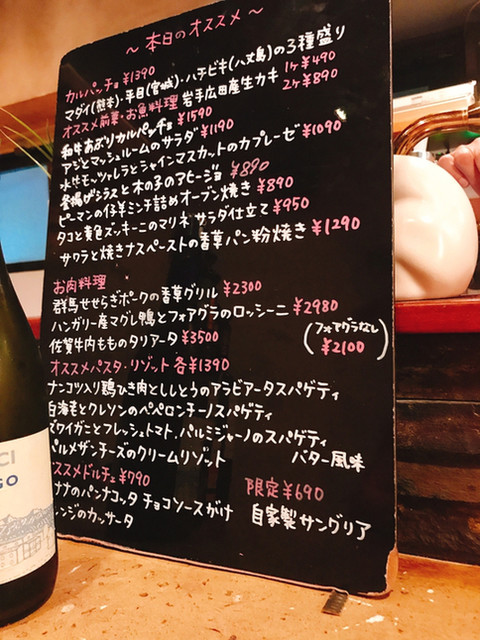 ～本日のオススメ～
カルパッチョ ¥1390
マダイ(熊本)・平目(宮城)・ハチビキ(八丈島)の3種盛り
オススメ前菜・お魚料理 岩手広田産生カキ 1ケ ¥490
2ケ ¥890
和牛あぶりカルパッチョ ¥1590
アジとマッシュルームのサラダ ¥1190
水牛モッツァレラとシャインマスカットのカプレーゼ ¥1090
釜揚げシラスと木の子のアヒージョ ¥890
ピーマンの仔羊ミンチ詰めオーブン焼き ¥890
タコと黄色ズッキーニのマリネ サラダ仕立て ¥950
サワラと焼きナスペーストの香草パン粉焼き ¥1290
お肉料理
群馬せせらぎポークの香草グリル ¥2300
ハンガリー産マグレ鴨とフォアグラのロッシーニ ¥2980
(フォアグラなし ¥2100)
佐賀牛内もものタリアータ ¥3500
オススメパスタ・リゾット 各¥1390
ナンコツ入り鶏ひき肉とししとうのアラビアータスパゲティ
白海老とクレソンのペペロンチーノスパゲティ
ズワイガニとフレッシュトマト、パルミジャーノのスパゲティ
バター風味
パルメザンチーズのクリームリゾット
オススメドルチェ ¥790
限定 ¥690
ナナのパンナコッタ チョコソースがけ
自家製サングリア
レンジのカッサータ
CI
GO